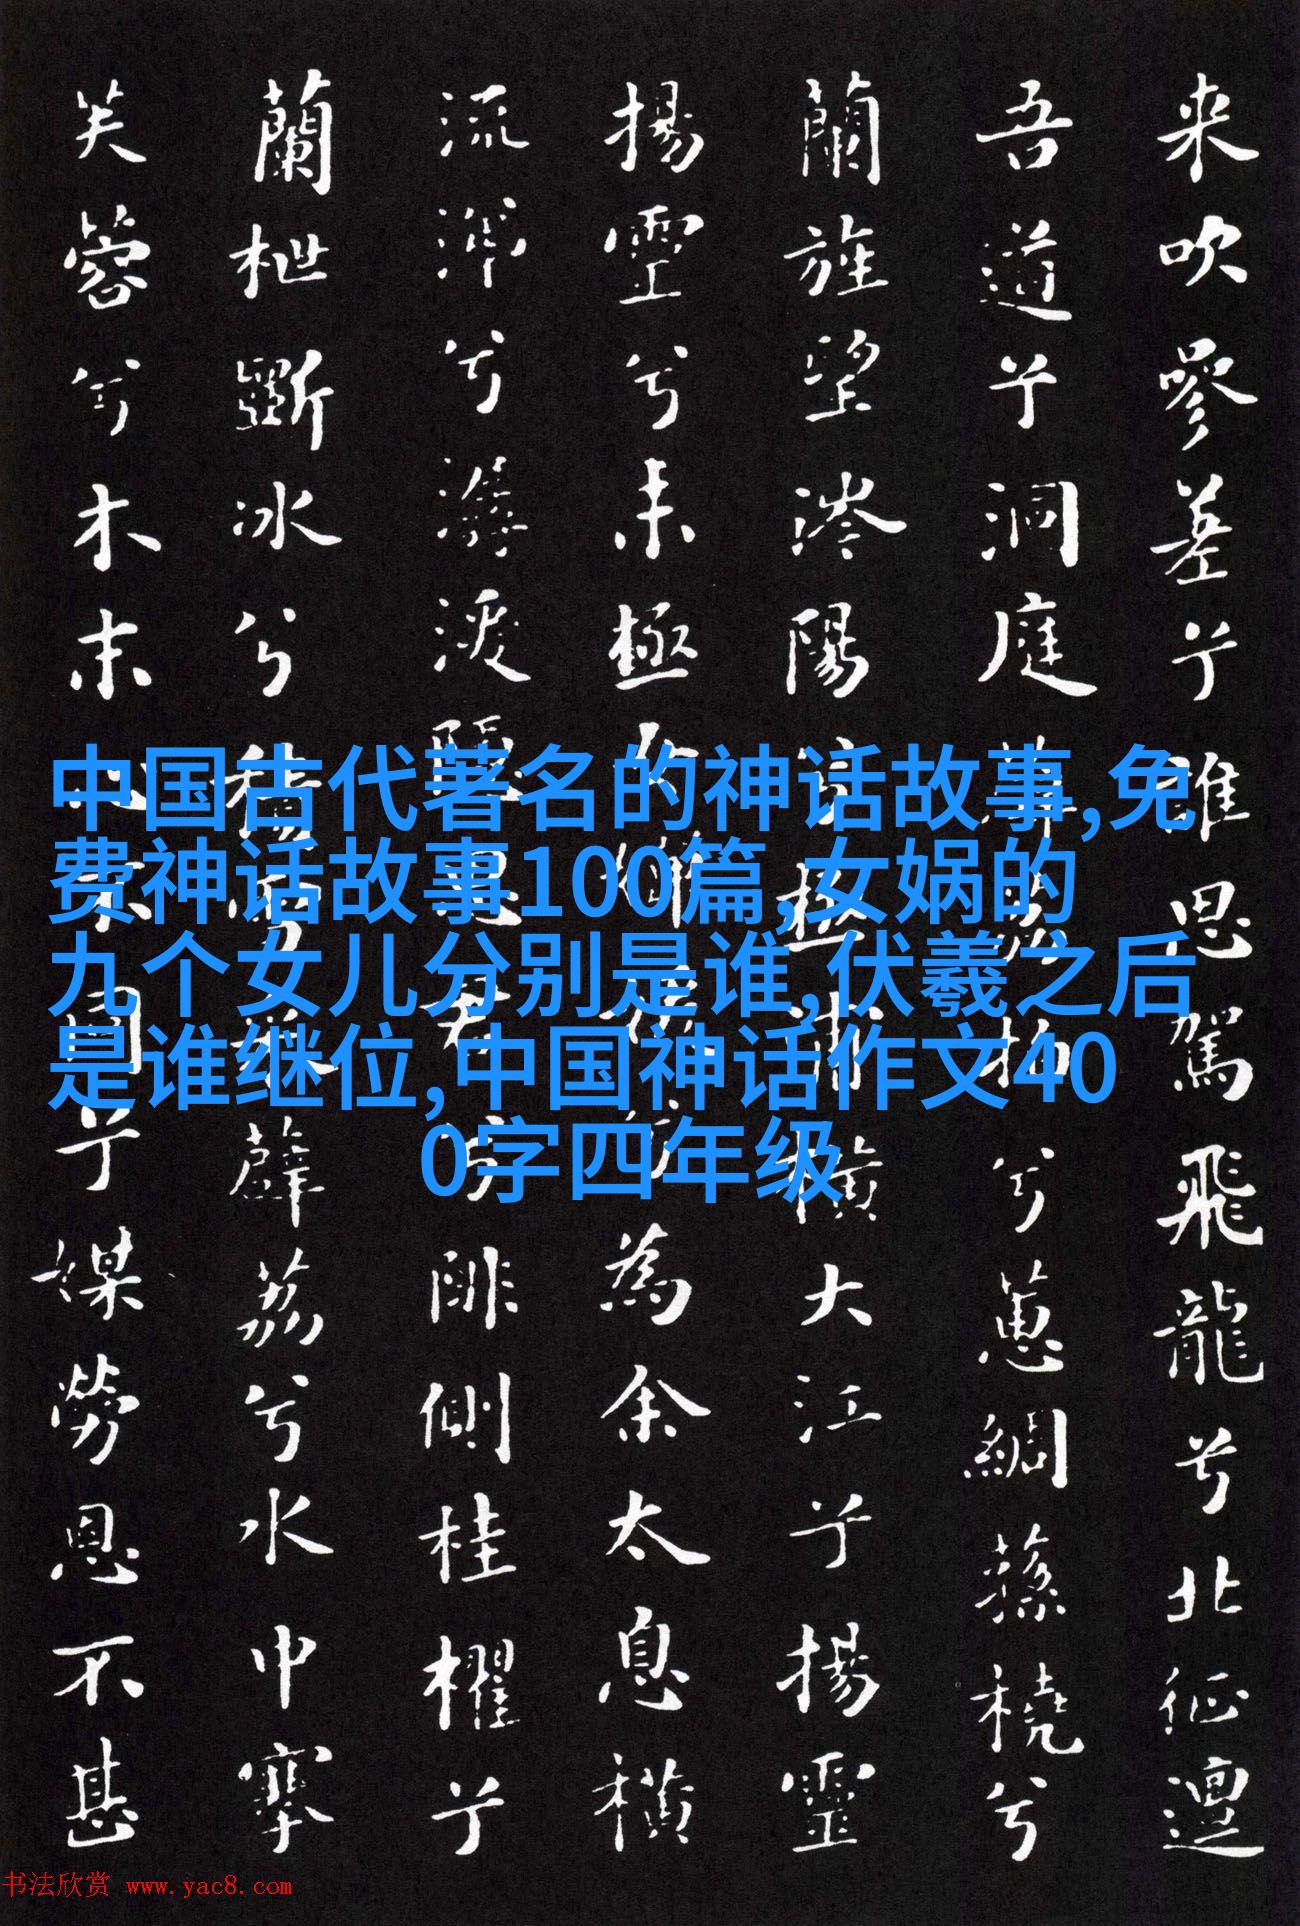 来吹參差兮誰思駕飛龍兮北征邅
吾道兮洞庭薜荔拍兮蕙綢蓀橈兮
蘭旌望涔陽兮極浦橫大江兮揚靈
揚靈兮未極女嬋媛兮為余太息橫
流涕兮潺湲隱思君兮陫側桂櫂兮
蘭枻斲冰兮積雪采薜荔兮水中搴
芙蓉兮木末心不同兮媒勞恩不甚
中国古代著名的神话故事,免
费神话故事100篇,女娲的
九个女儿分别是谁,伏羲之后
是谁继位,中国神话作文40
0字四年级
书法欣赏 www.yac8.com